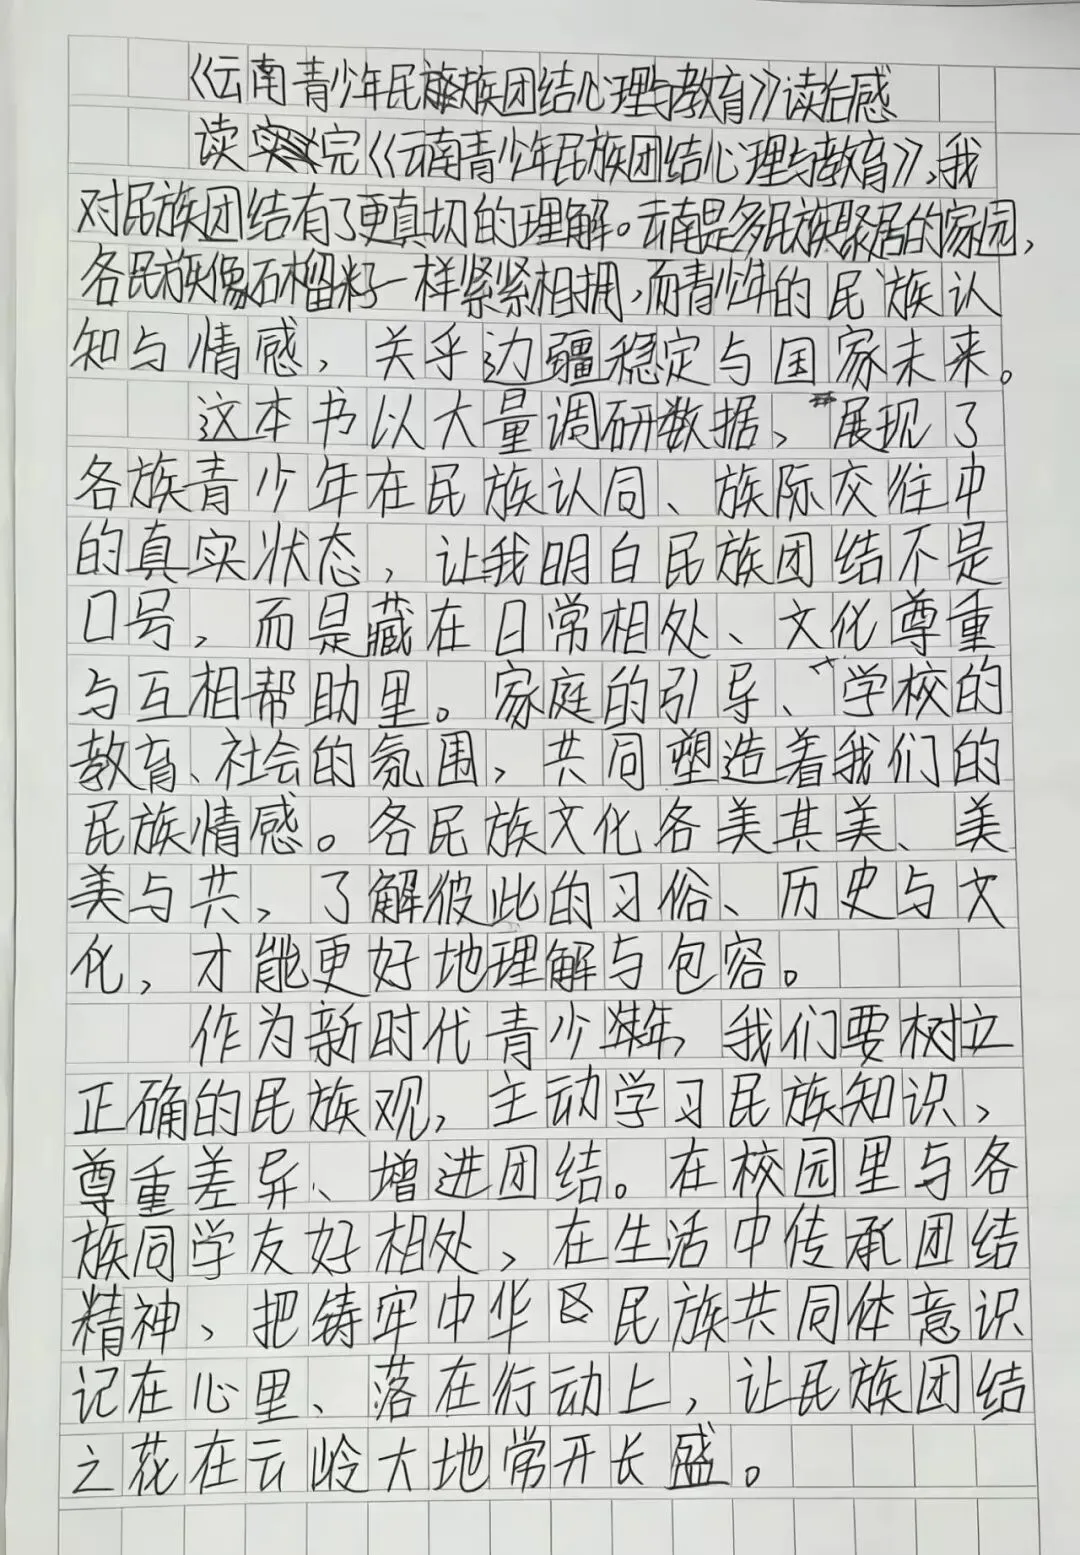 《云南青少年民族团结心理与教育》读后感
读完《云南青少年民族团结心理与教育》,我
对民族团结有了更真切的理解。云南是多民族聚居的家园,
各民族像石榴籽一样紧紧相拥,而青少年的民族认
知与情感,关乎边疆稳定与国家未来。
这本书以大量调研数据、展现了
各族青少年在民族认同、族际交往中
的真实状态,让我明白民族团结不是
口号,而是藏在日常相处、文化尊重
与互相帮助里。家庭的引导、学校的
教育、社会的氛围,共同塑造着我们的
民族情感。各民族文化各美其美、美
美与共,了解彼此的习俗、历史与文
化,才能更好地理解与包容。
作为新时代青少年,我们要树立
正确的民族观,主动学习民族知识,
尊重差异、增进团结。在校园里与各
族同学友好相处,在生活中传承团结
精神、把铸牢中华民族共同体意识
记在心里、落在行动上,让民族团结
之花在云岭大地常开长盛。